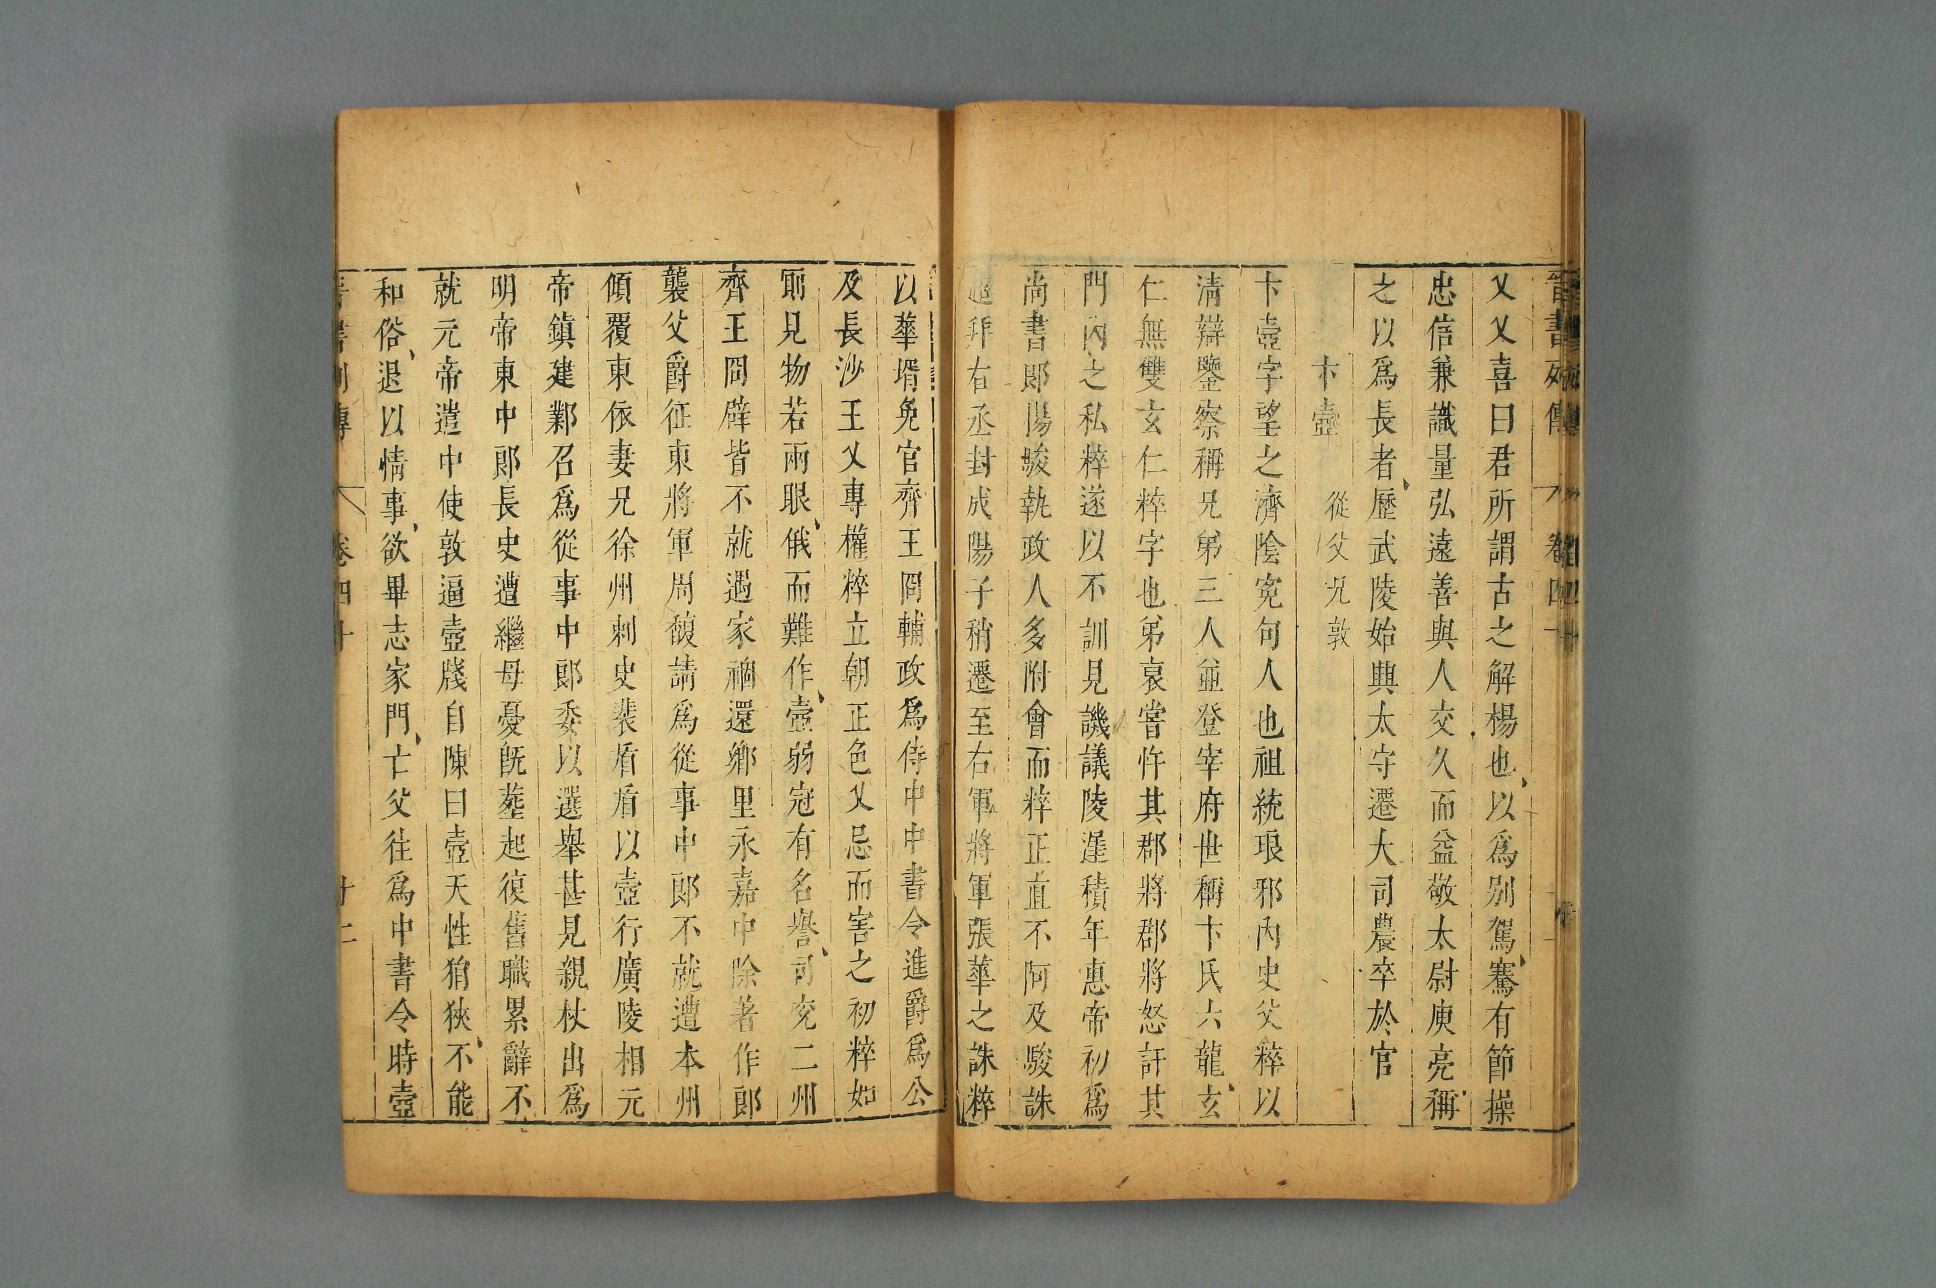 晉書列傳 卷四十
乂乂喜曰君所謂古之解楊也以爲別駕騫有節操
忠信兼識量弘遠善與人交久而益敬太尉庾亮稱
之以爲長者歷武陵始興太守遷大司農卒於官
卞壼 從父兄敦
卞壼字望之濟陰寃句人也祖統琅邪內史父粹以
清辯鑒察稱兄弟三人並登宰府世稱卞氏六龍玄
仁無雙玄仁粹字也弟裒嘗忤其郡將郡將怒訐其
門內之私粹遂以不訓見譏議陵遲積年惠帝初爲
尚書郎陽駿執政人多附會而粹正直不阿及駿誅
超拜右丞封成陽子稍遷至右軍將軍張華之誅粹
以華壻免官齊王冏輔政爲侍中中書令進爵爲公
及長沙王乂專權粹立朝正色乂忌而害之初粹如
厠見物若兩眼俄而難作壼弱冠有名譽司兖二州
齊王冏辟皆不就遇家禍還鄉里永嘉中除著作郎
襲父爵征東將軍周馥請爲從事中郎不就遭本州
傾覆東依妻兄徐州刺史裴盾盾以壼行廣陵相元
帝鎮建鄴召爲從事中郎委以選舉甚見親杖出爲
明帝東中郎長史遭繼母憂旣葬起復舊職累辭不
就元帝遣中使敦逼壼牋自陳曰壼天性狷狹不能
和俗退以情事欲畢志家門亡父往爲中書令時壼
晉書列傳 卷四十 廿二